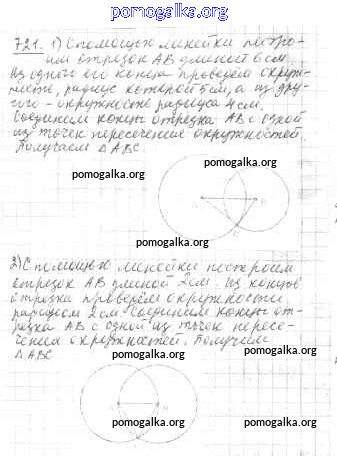 pomogalka.org
721. 1) С помощью линейки постро-
им отрезок AB длиной 6 см.
Из одного его конца проведём окруж-
ность, радиус которой 5 см, а из дру-
гого - окружность радиуса 4 см.
Соединим концы отрезка AB с одной
из точек пересечения окружностей.
Получаем △ABC.
pomogalka.org
pomogalka.org
A B
C
pomogalka.org
2) С помощью линейки построим
отрезок AB длиной 2 см. Из концов
отрезка проведём окружности
радиусом 2 см. Соединим концы от-
резка AB с одной из точек пересе-
чения окружностей. Получим
△ABC
pomogalka.org
pomogalka.org
pomogalka.org
pomogalka.org